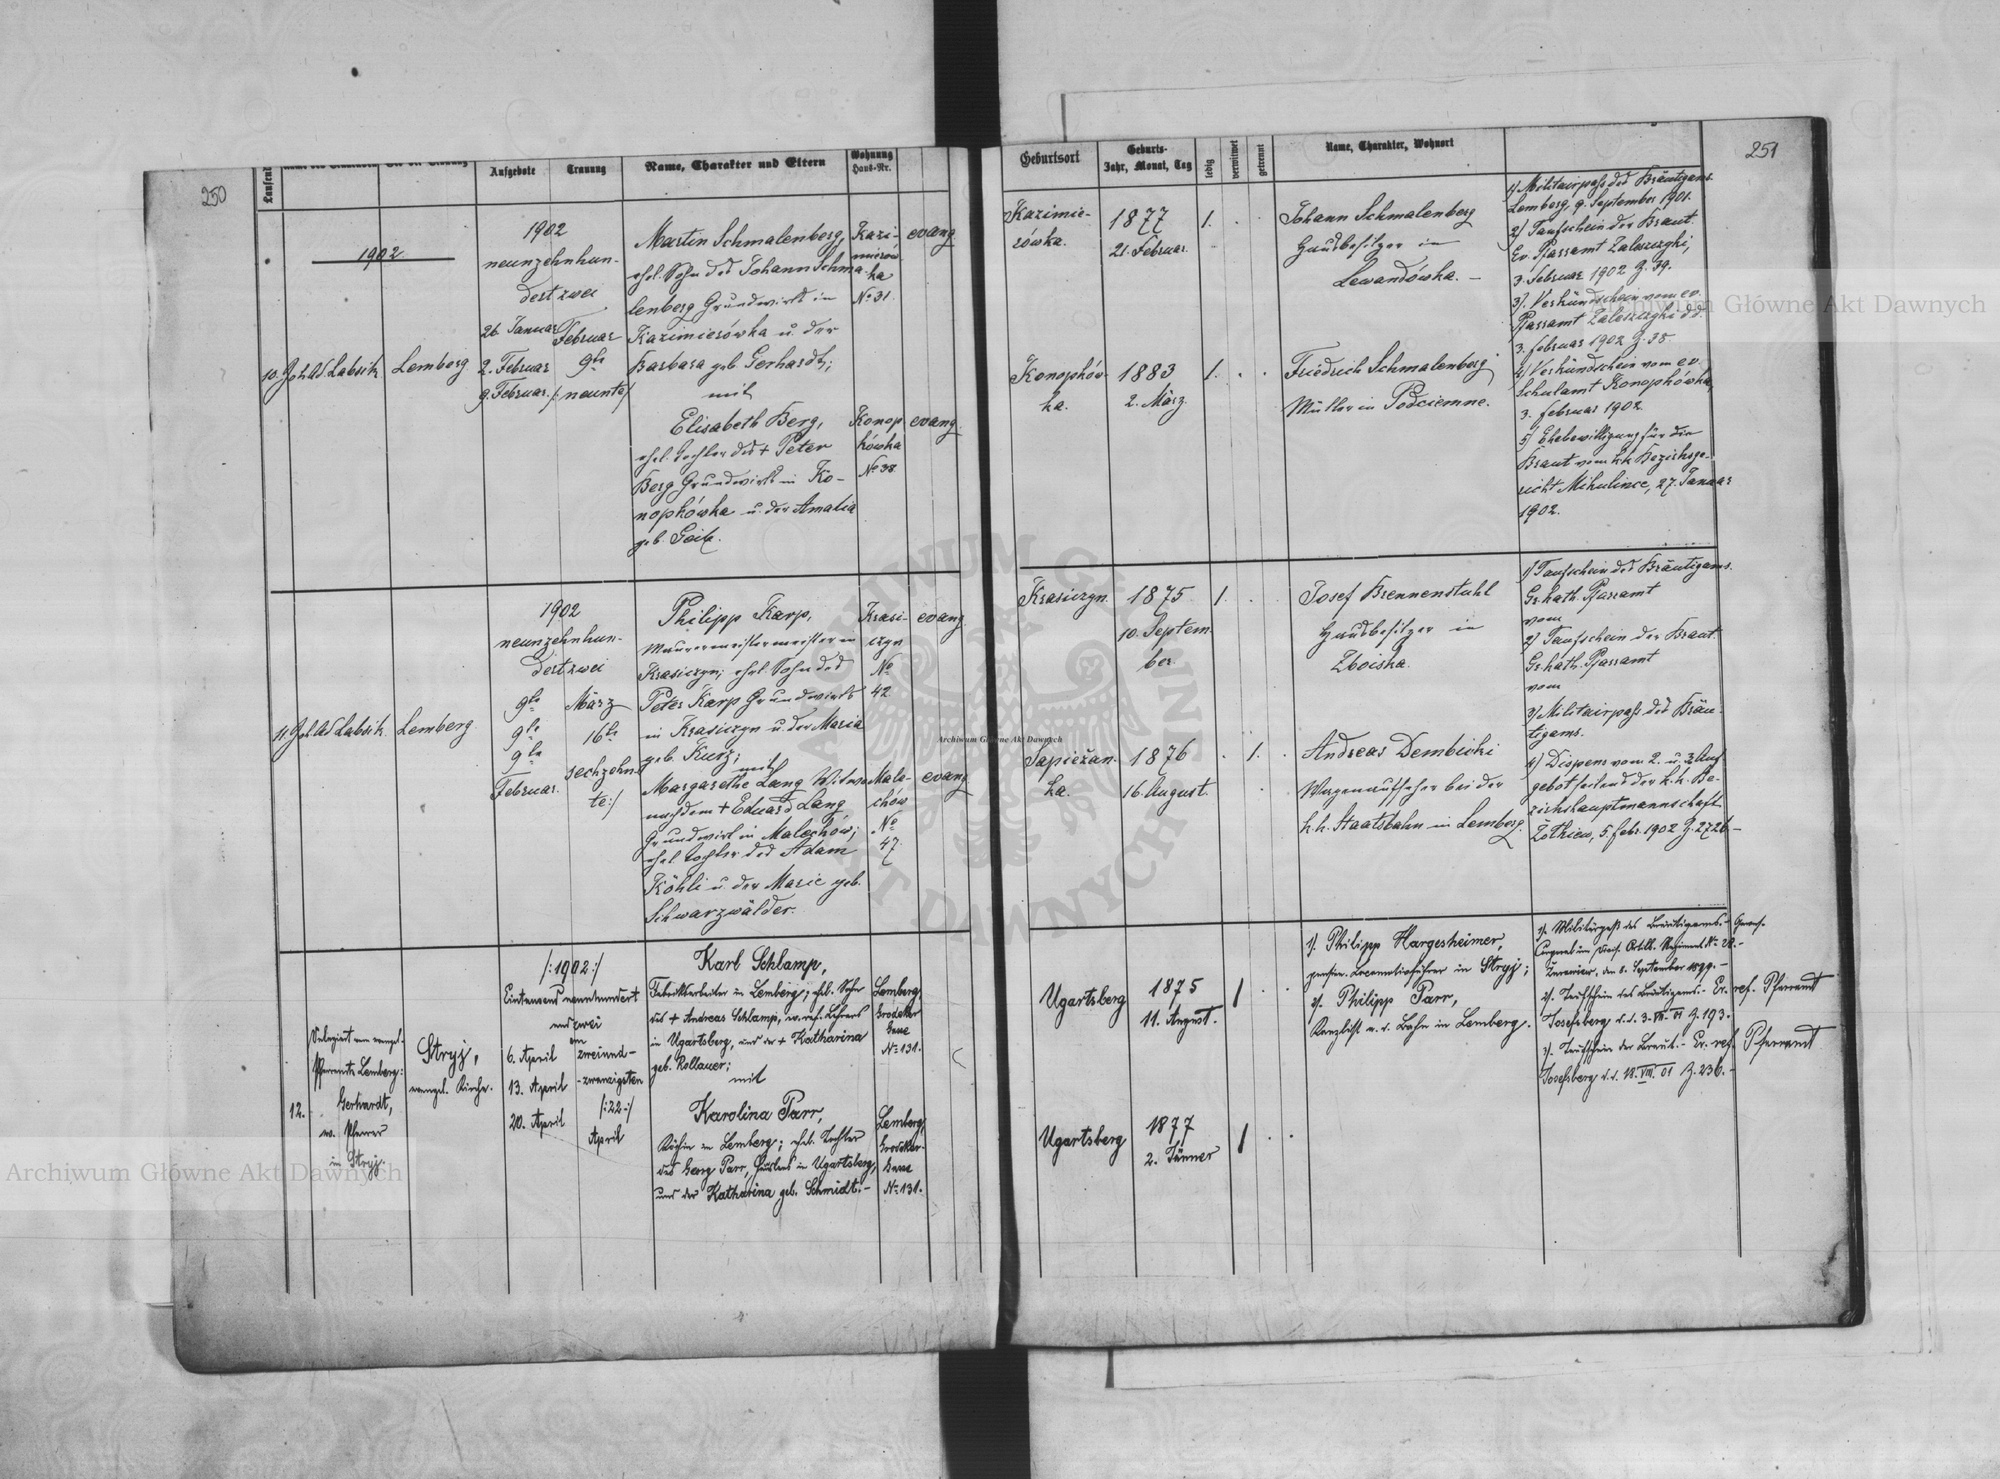 250
Aufgebote
Trauung
Name, Charakter und Eltern
Wohnung
Haus-Nr.
1902
10. Joh. Ad. Labsik
Lemberg
1902
neunzehnhun-
dertzwei
26. Januar
2. Februar
9. Februar
Februar
9te
/:neunte/
Martin Schmalenberg,
ehel. Sohn des Johann Schma-
lenberg Grundwirth in
Kazimierówka u. der
Barbara geb. Gerhardt;
mit
Elisabeth Berg,
ehel. Tochter des + Peter
Berg Grundwirth in Ko-
nopkówka u. der Amalia
geb.
Kazi-
mierów
ka
No 31.
evang
Konop
kówka
No 38
evang
11. Joh. Ad. Labsik.
Lemberg
1902
neunzehnhun-
dertzwei
9te
9te
9te
Februar.
März
16te
sechzehn
te:/
Philipp Karp,
Maurermeister in
Krasiczyn; ehel. Sohn des
Peter Karp Grundwirth
in Krasiczyn u. der Maria
geb. Kurz;
mit
Margarethe Lang Witwe
nach dem + Eduard Lang
Grundwirth in Malechów;
ehel. Tochter des Adam
Köhli u. der Marie geb.
Schwarzwälder.
Krasi-
czyn
No
42
evang.
Male-
chów
No
47.
evang
12.
Delegiert vom evangel.
Pfarramte Lemberg:
Gerhardt,
ev. Pfarrer
in Stryj.
Stryj,
evangel. Kirche.
/:1902:/
Eintausend neunhundert
und zwei
6. April
13. April
20. April
am
zweiund-
-zwanzigsten
/:22:/
April
Karl Schlamp,
Fabriksarbeiter in Lemberg; ehel. Sohn
des + Andreas Schlamp, ev. ref. Lehrers
in Ugartsberg, und der + Katharina
geb. Kollauer;
mit
Karolina Parr,
Köchin in Lemberg; ehel. Tochter
des Georg Parr, in Ugartsberg,
und der Katharina geb. Schmidt.-
Lemberg
Grodeker
Gasse
No 131.
Lemberg,
Grodeker-
Gasse
No 131.
251
Geburtsort
Geburts-
Jahr, Monat, Tag
ledig
verwitwet
getrennt
Name, Charakter, Wohnort
Kazimie-
rówka.
1877
21. Februar.
1.
Johann Schmalenberg
Grundbesitzer in
Lewandówka. -
1) Militairpaß des Bräutigams
Lemberg, 9. September 1901.
2) Taufschein der Braut
Ev. Pfarramt Zaleszczyki;
3. Februar 1902 Z. 39.
3) Verkündschein vom ev.
Pfarramt Zaleszczyki dd.
3. Februar 1902 Z. 38
4) Verkündschein vom ev.
Schulamt Konopkówka,
3. Februar 1902.
5) Ehebewilligung für die
Braut vom k.k. Bezirksge-
richt Mikulince, 27. Januar
1902.
Konopków-
ka.
1883
2. März.
1.
Friedrich Schmalenberg
Müller in Podciemne.
Krasiczyn.
1875
10. Septem-
ber.
1.
Josef Brennenstuhl
Grundbesitzer in
Zboiska.
1) Taufschein des Bräutigams.
Gr. kath. Pfarramt
vom
2) Taufschein der Braut.
Gr. kath. Pfarramt
vom
3) Militairpaß des Bräu-
tigams.
4) Dispens vom 2. u. 3. Auf
gebot seitens der k.k. Be-
zirkshauptmannschaft
Żółkiew, 5. Febr. 1902 Z. 2726 -
Sapieżan-
ka.
1876
16. August.
1.
Andreas Dembicki
Wagenaufseher bei der
k.k. Staatsbahn in Lemberg.
Ugartsberg
1875
11. August.
1
1). Philipp Hargesheimer,
pension. Locomotivführer in Stryj;
2). Philipp Parr,
Kanzlist a. d. Bahn in Lemberg.
1). Militärpaß des Bräutigams. -
Corporal im Divis. Artill. Regiment No 28. -
den 8. September 1899. -
2). Taufschein des Bräutigams. - Ev. ref. Pfarramt
Josefsberg d.d. 3. VII. 01 Z. 193. -
3). Taufschein der Braut. - Ev. ref. Pfarramt
Josefsberg d.d. 18. VIII. 01 Z. 236. -
Ugartsberg
1877
2. Jänner
1
Archiwum Główne Akt Dawnych
Archiwum Główne Akt Dawnych
Archiwum Główne Akt Dawnych